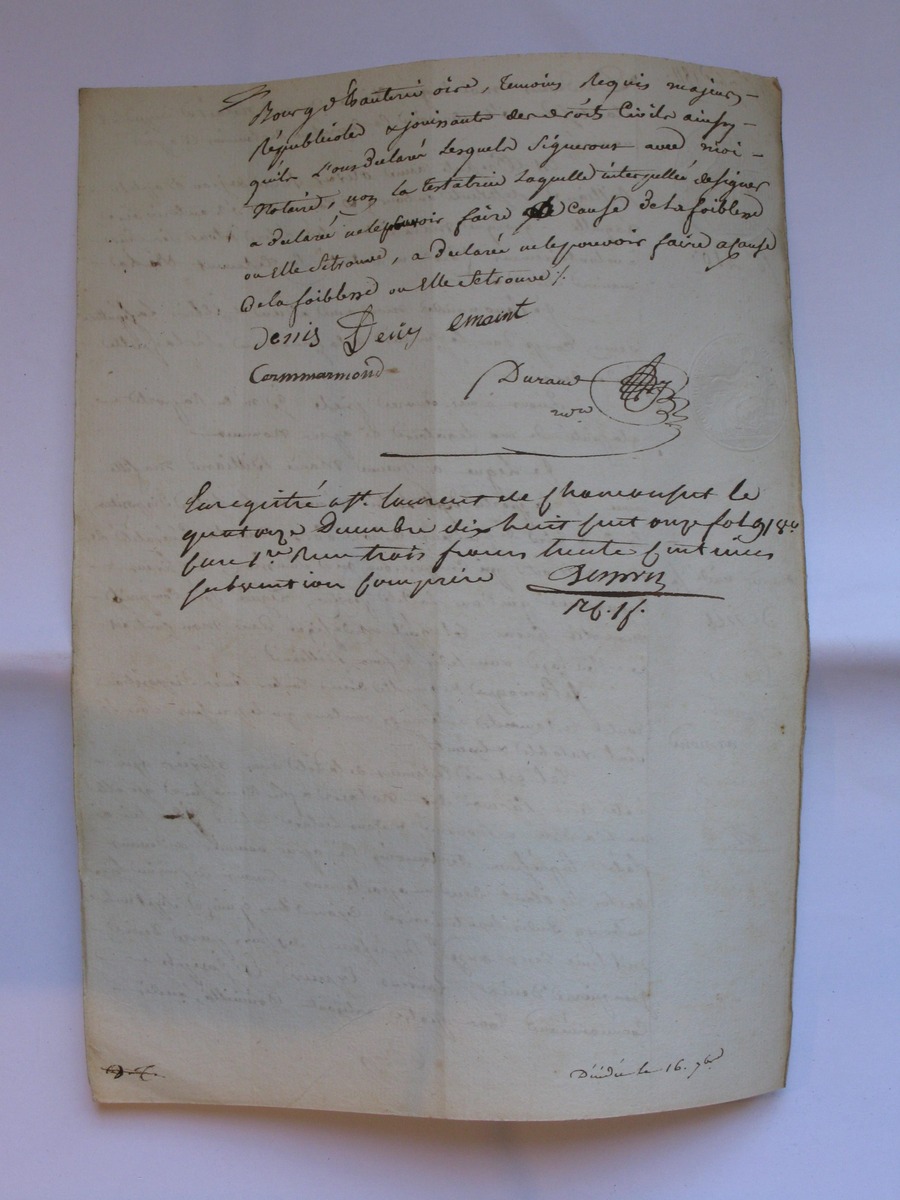 Bourg d'hauterivoire, temoins Requis majeurs
Républicoles & jouissants des droits Civils ainsy
qu'ils L'ont declaré Lesquels Signeront avec moi
Notaire, non la testatrice Laquelle interpellée designer
a declaré ne le pouvoir faire a Cause de la foiblesse
ou elle Setrouve, a declaré ne le pouvoir faire a cause
de la foiblesse ou elle Setrouve ./.
denis Denis emaint
Commarmond
Durand
nore
Enregistré a st. laurent de Chamousset le
quatorze Decembre dix huit cent onze fol. 91 8º
Case 1re Reçu trois francs trente centimes
subvention comprise
Décédée le 16. 7bre